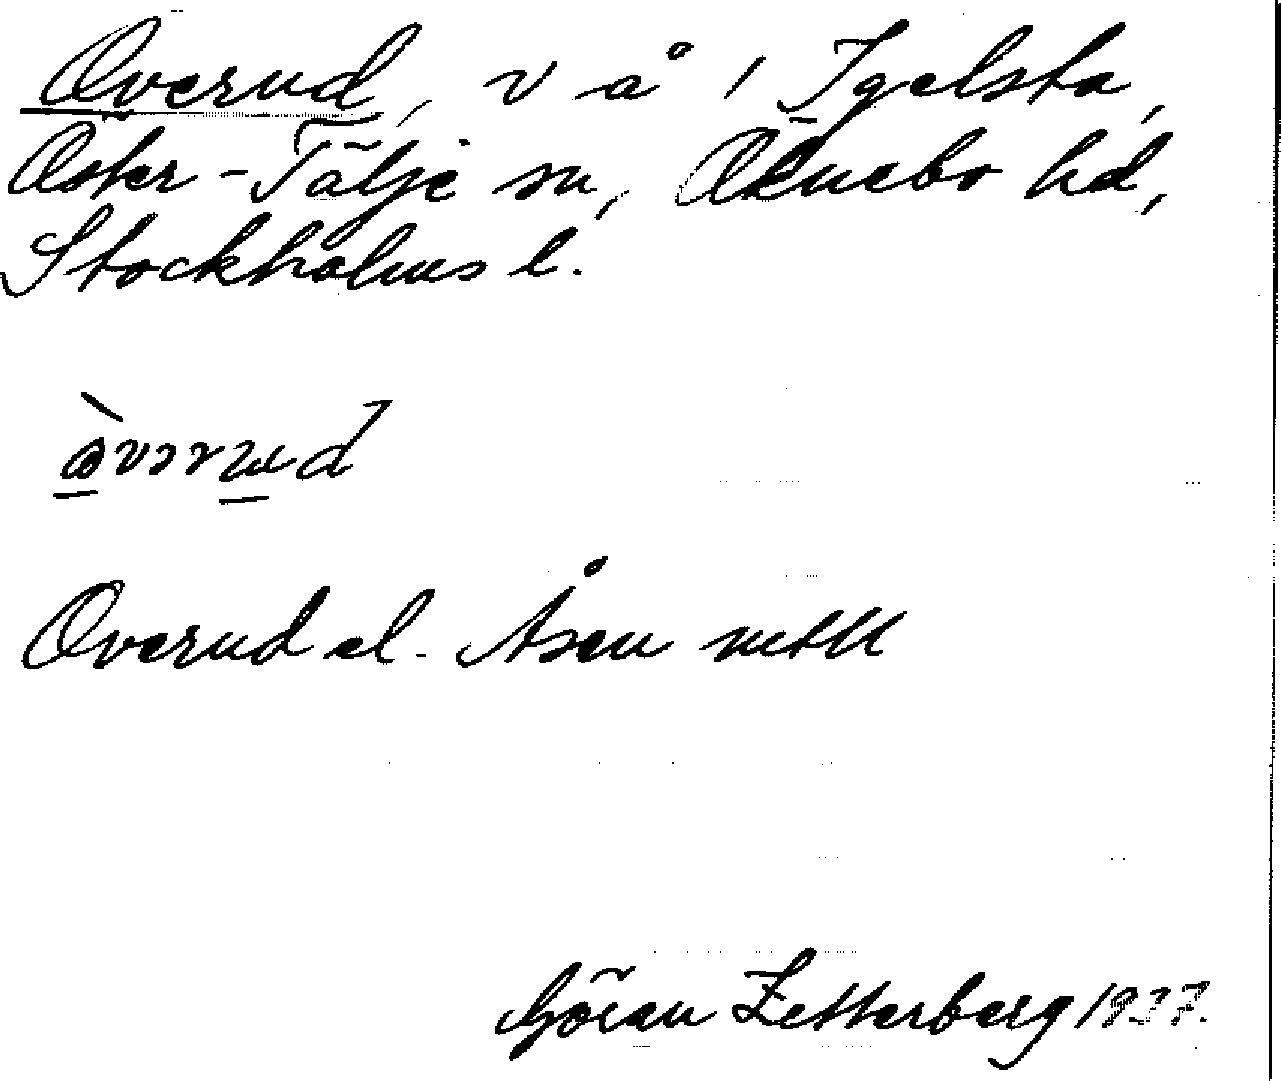 Överud, v å i Igelsta,
Öster-Tälje sn, Öknebo hd,
Stockholms l.
Överud el. Åsen mtll
Göran Zetterberg 1937.